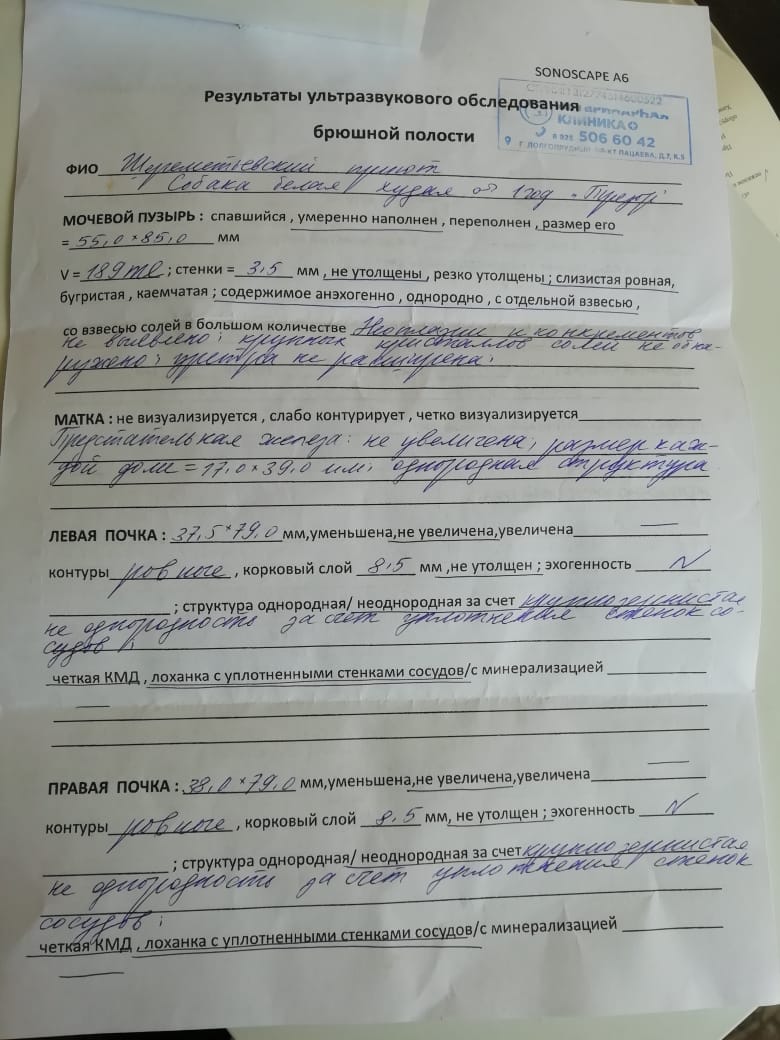 SONOSCAPE A6
Результаты ультразвукового обследования
брюшной полости
КЛИНИКА
8 925 506 60 42
Г. ДОЛГОПРУДНЫЙ ПР-КТ ПАЦАЕВА, Д.7, К.5
ФИО Шереметьевский приют
Собака белая худая 1 год
МОЧЕВОЙ ПУЗЫРЬ : спавшийся , умеренно наполнен , переполнен , размер его
= 55,0 × 85,0 мм
V = 189 ml ; стенки = 3,5 мм , не утолщены , резко утолщены ; слизистая ровная,
бугристая , каемчатая ; содержимое анэхогенно , однородно , с отдельной взвесью ,
со взвесью солей в большом количестве Неоплазии и конкрементов
не выявлено ; крупных кристаллов солей не обна-
ружено ; уретра не расширена .
МАТКА : не визуализируется , слабо контурирует , четко визуализируется
Предстательная железа : не увеличена , размер каж-
дой доли = 17,0 × 39,0 мм, однородная структура
ЛЕВАЯ ПОЧКА : 37,5 × 79,0 мм,уменьшена,не увеличена,увеличена —
контуры ровные , корковый слой 8,5 мм ,не утолщен ; эхогенность N
; структура однородная/ неоднородная за счет крупнозернистая
не однородность за счет уплотнения стенок со-
судов ;
четкая КМД , лоханка с уплотненными стенками сосудов/с минерализацией
—
ПРАВАЯ ПОЧКА : 38,0 × 79,0 мм,уменьшена,не увеличена,увеличена —
контуры ровные , корковый слой 8,5 мм, не утолщен ; эхогенность N
; структура однородная/ неоднородная за счет крупнозернистая
не однородность за счет уплотнения стенок
сосудов ;
четкая КМД , лоханка с уплотненными стенками сосудов/с минерализацией
—